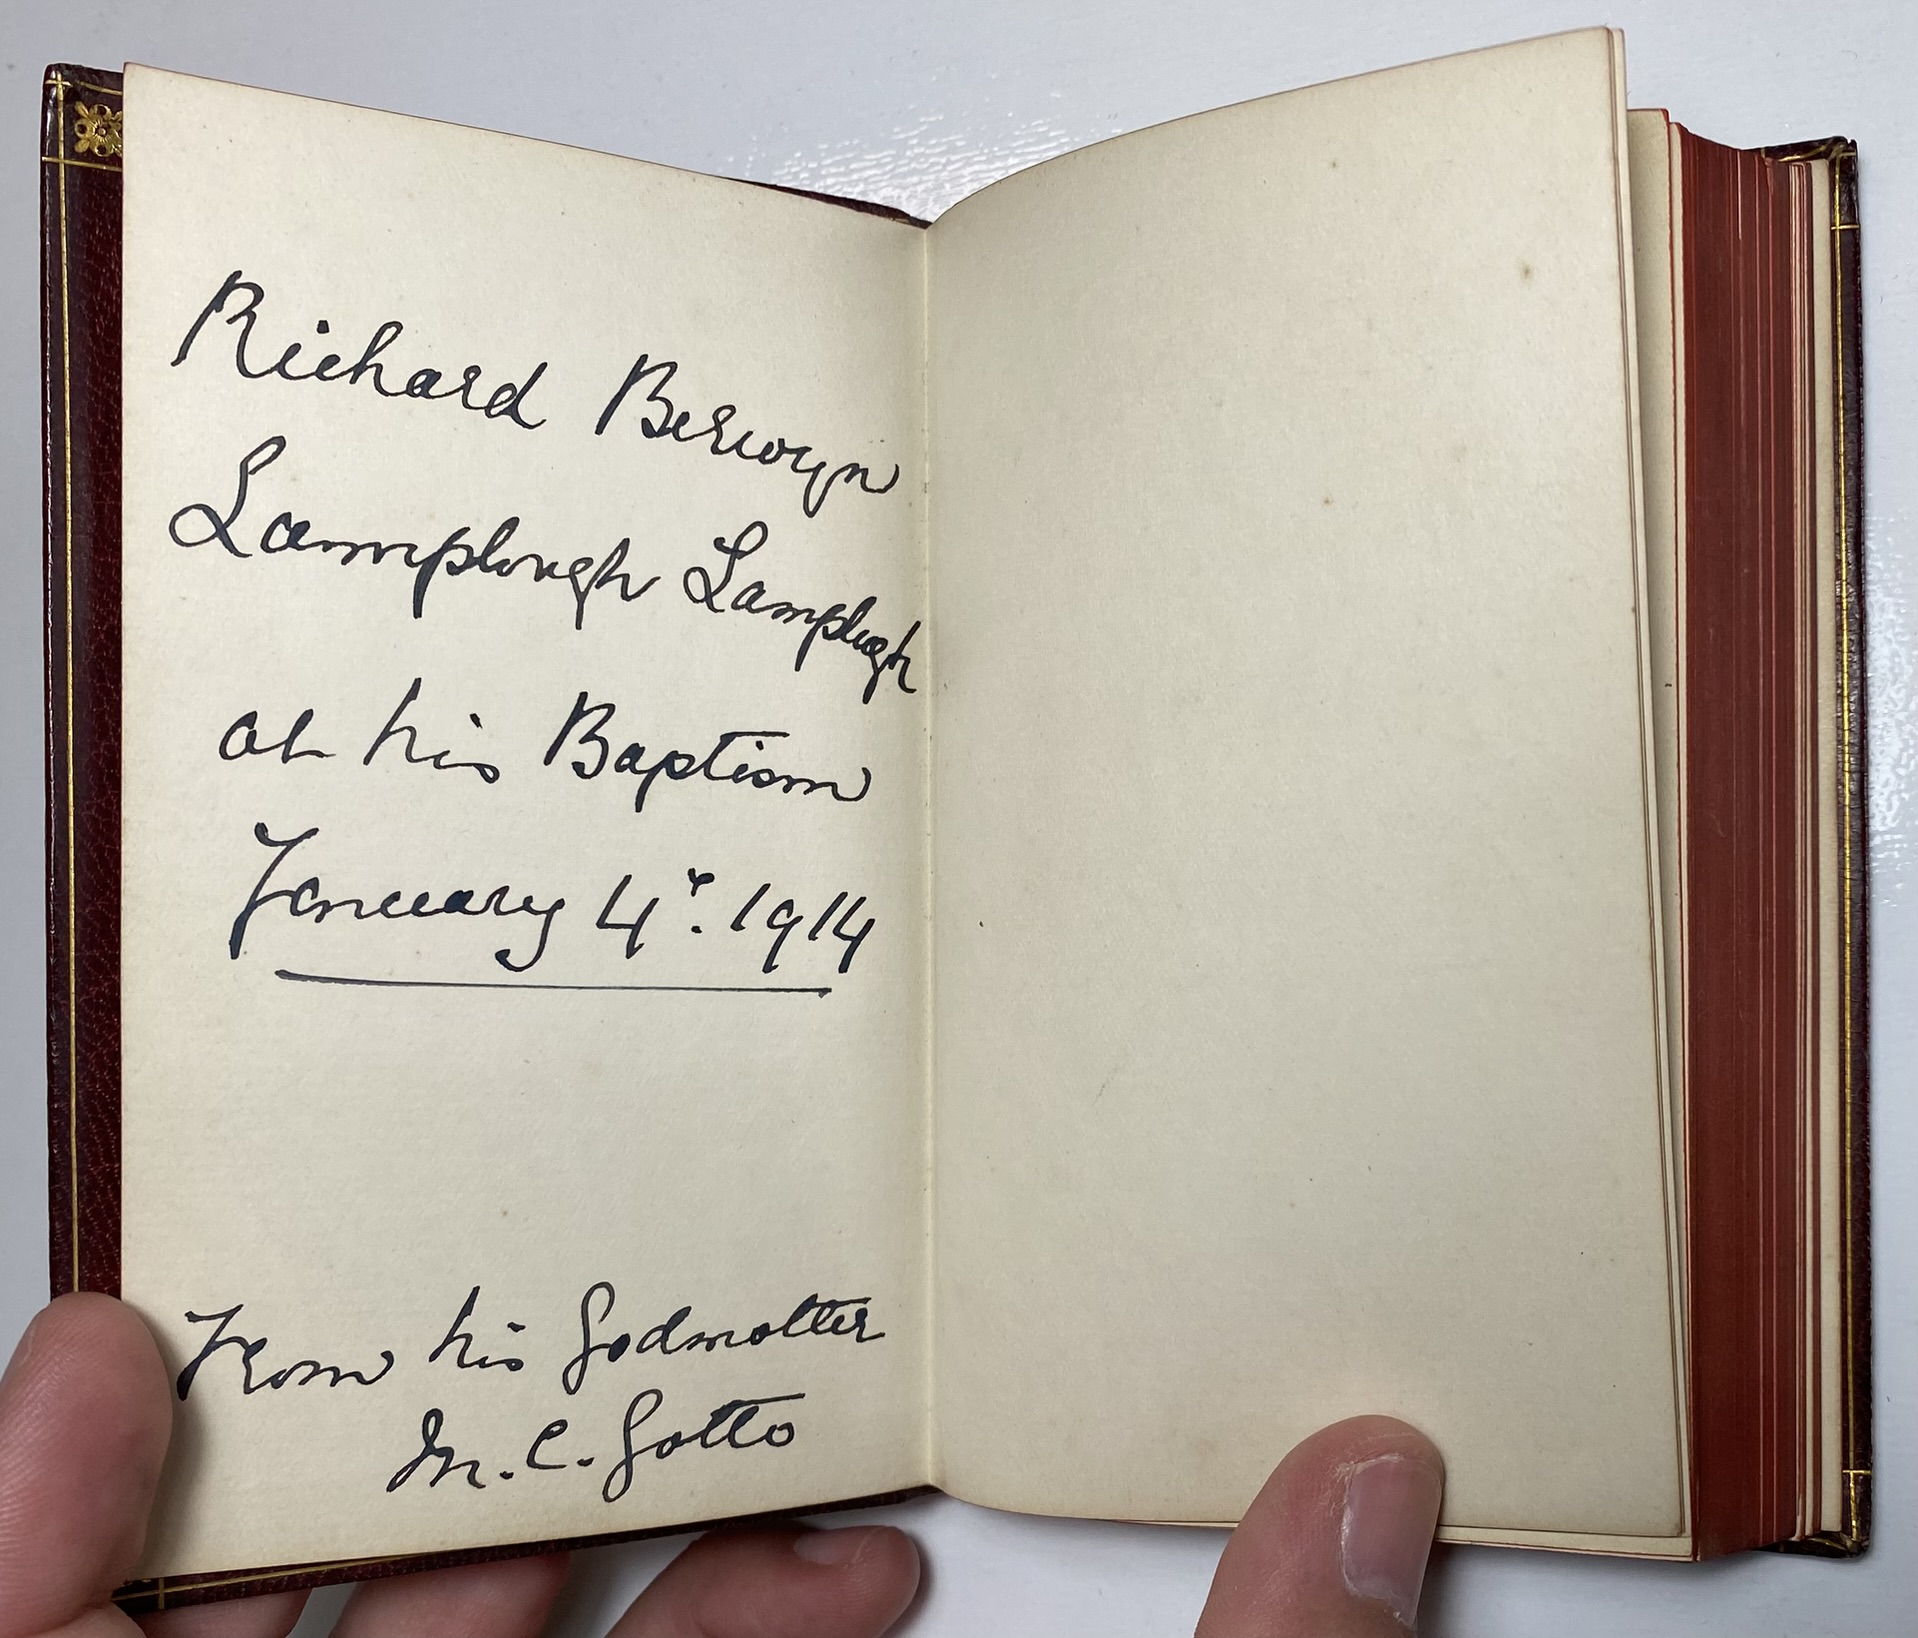 Richard Berwyn
Lamplough Lamplugh
at his Baptism
January 4th. 1914
From his Godmother
M. C. Gotto